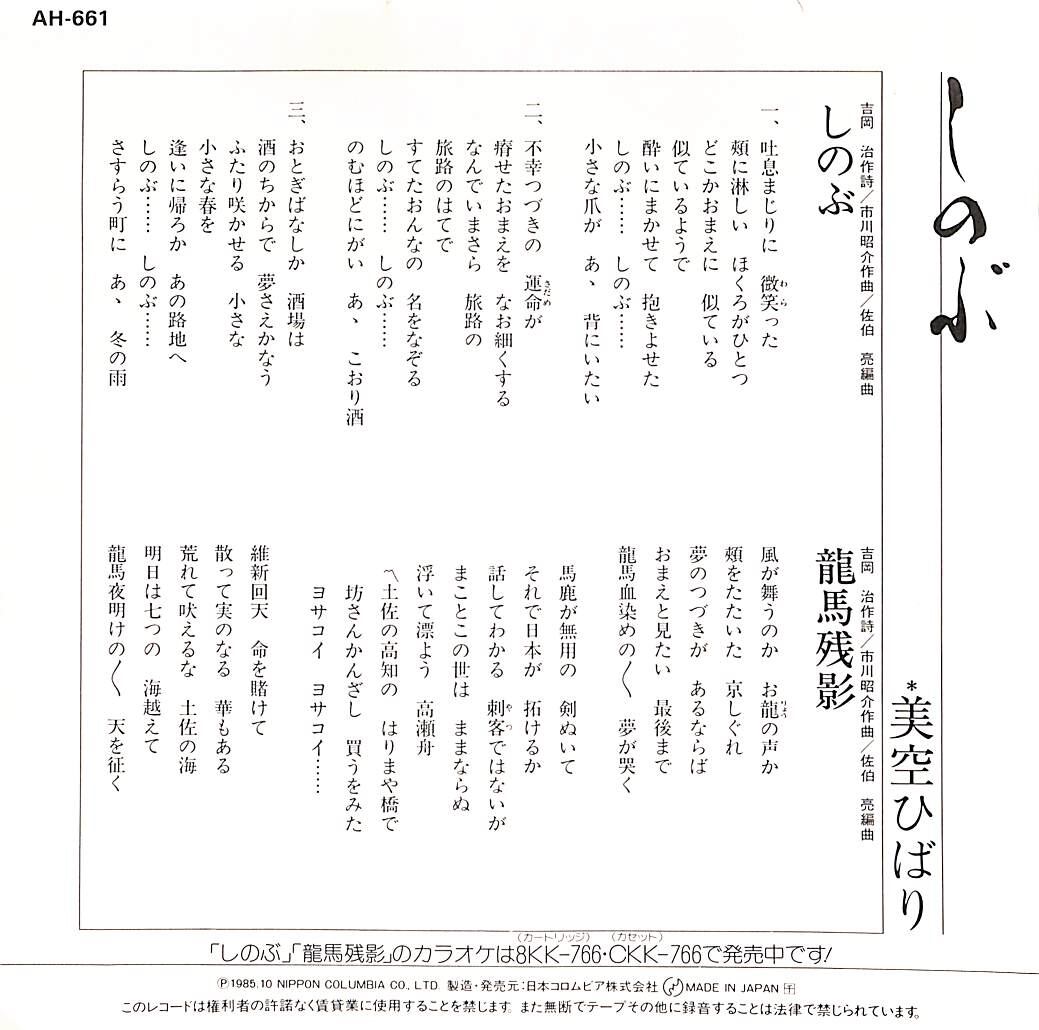 AH-661
しのぶ
*美空ひばり
しのぶ
吉岡 治作詩/市川昭介作曲/佐伯 亮編曲
一、吐息まじりに 微笑った
わら
頬に淋しい ほくろがひとつ
どこかおまえに 似ている
似ているようで
酔いにまかせて 抱きよせた
しのぶ…… しのぶ……
小さな爪が あゝ 背にいたい
二、不幸つづきの 運命が
さだめ
瘠せたおまえを なお細くする
なんでいまさら 旅路の
旅路のはてで
すてたおんなの 名をなぞる
しのぶ…… しのぶ……
のむほどにがい あゝ こおり酒
三、おとぎばなしか 酒場は
酒のちからで 夢さえかなう
ふたり咲かせる 小さな
小さな春を
逢いに帰ろか あの路地へ
しのぶ…… しのぶ……
さすらう町に あゝ 冬の雨
龍馬残影
吉岡 治作詩/市川昭介作曲/佐伯 亮編曲
風が舞うのか お龍の声か
りょう
頬をたたいた 京しぐれ
夢のつづきが あるならば
おまえと見たい 最後まで
龍馬血染めの〱 夢が哭く
馬鹿が無用の 剣ぬいて
それで日本が 拓けるか
話してわかる 刺客ではないが
やつ
まことこの世は ままならぬ
浮いて漂よう 高瀬舟
〽土佐の高知の はりまや橋で
坊さんかんざし 買うをみた
ヨサコイ ヨサコイ……
維新回天 命を賭けて
散って実のなる 華もある
荒れて吠えるな 土佐の海
明日は七つの 海越えて
龍馬夜明けの〱 天を征く
(カートリッジ) (カセット)
「しのぶ」「龍馬残影」のカラオケは8KK-766・CKK-766で発売中です!
Ⓟ1985.10 NIPPON COLUMBIA CO., LTD. 製造・発売元:日本コロムビア株式会社 MADE IN JAPAN
このレコードは権利者の許諾なく賃貸業に使用することを禁じます。また無断でテープその他に録音することは法律で禁じられています。